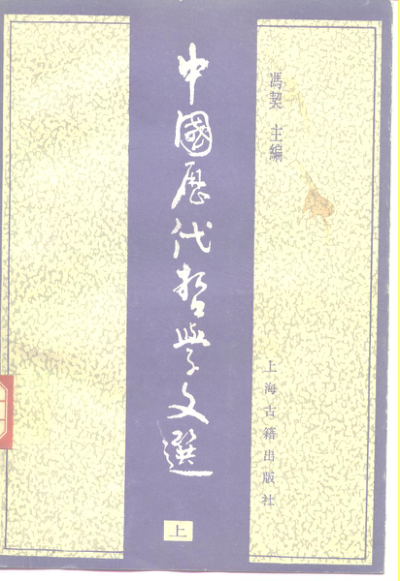 馮契 主編
中國歷代哲學文選
上
上海古籍出版社